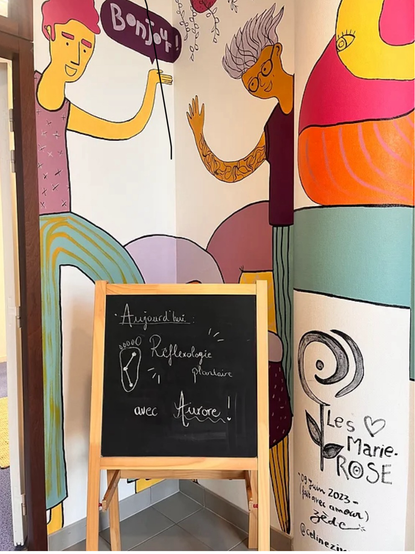 Bonjour!
Aujourd'hui:
Réflexologie
plantaire
avec Aurore!
Les
Marie-
ROSE
juin 2023-
(fait avec amour)
zède